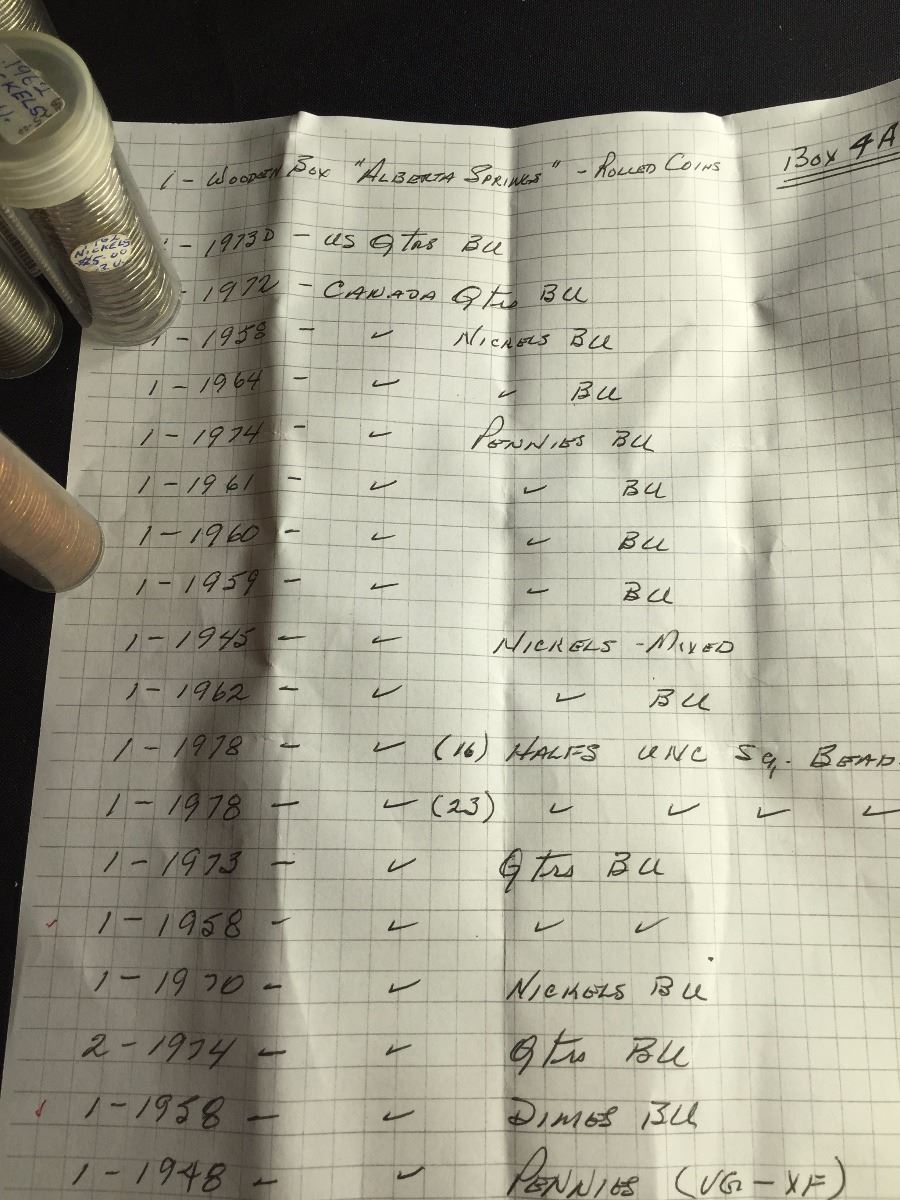 Box 4A
1 - Wooden Box "Alberta Springs" - Rolled Coins
- 1973D - US Qtrs BU
- 1972 - Canada Qtrs BU
1 - 1958 - ✓ Nickels BU
1 - 1964 - ✓ ✓ BU
1 - 1974 - ✓ Pennies BU
1 - 1961 - ✓ ✓ BU
1 - 1960 - ✓ ✓ BU
1 - 1959 - ✓ ✓ BU
1 - 1945 - ✓ Nickels - Mixed
1 - 1962 - ✓ ✓ BU
1 - 1978 - ✓ (16) Halfs UNC Sq. Bead
1 - 1978 - ✓ (23) ✓ ✓ ✓ ✓
1 - 1973 - ✓ Qtrs BU
✓ 1 - 1958 - ✓ ✓ ✓
1 - 1970 - ✓ Nickels BU
2 - 1974 - ✓ Qtrs BU
✓ 1 - 1958 - ✓ Dimes BU
1 - 1948 - ✓ Pennies (VG - XF)
1962
Nickels
$5.00